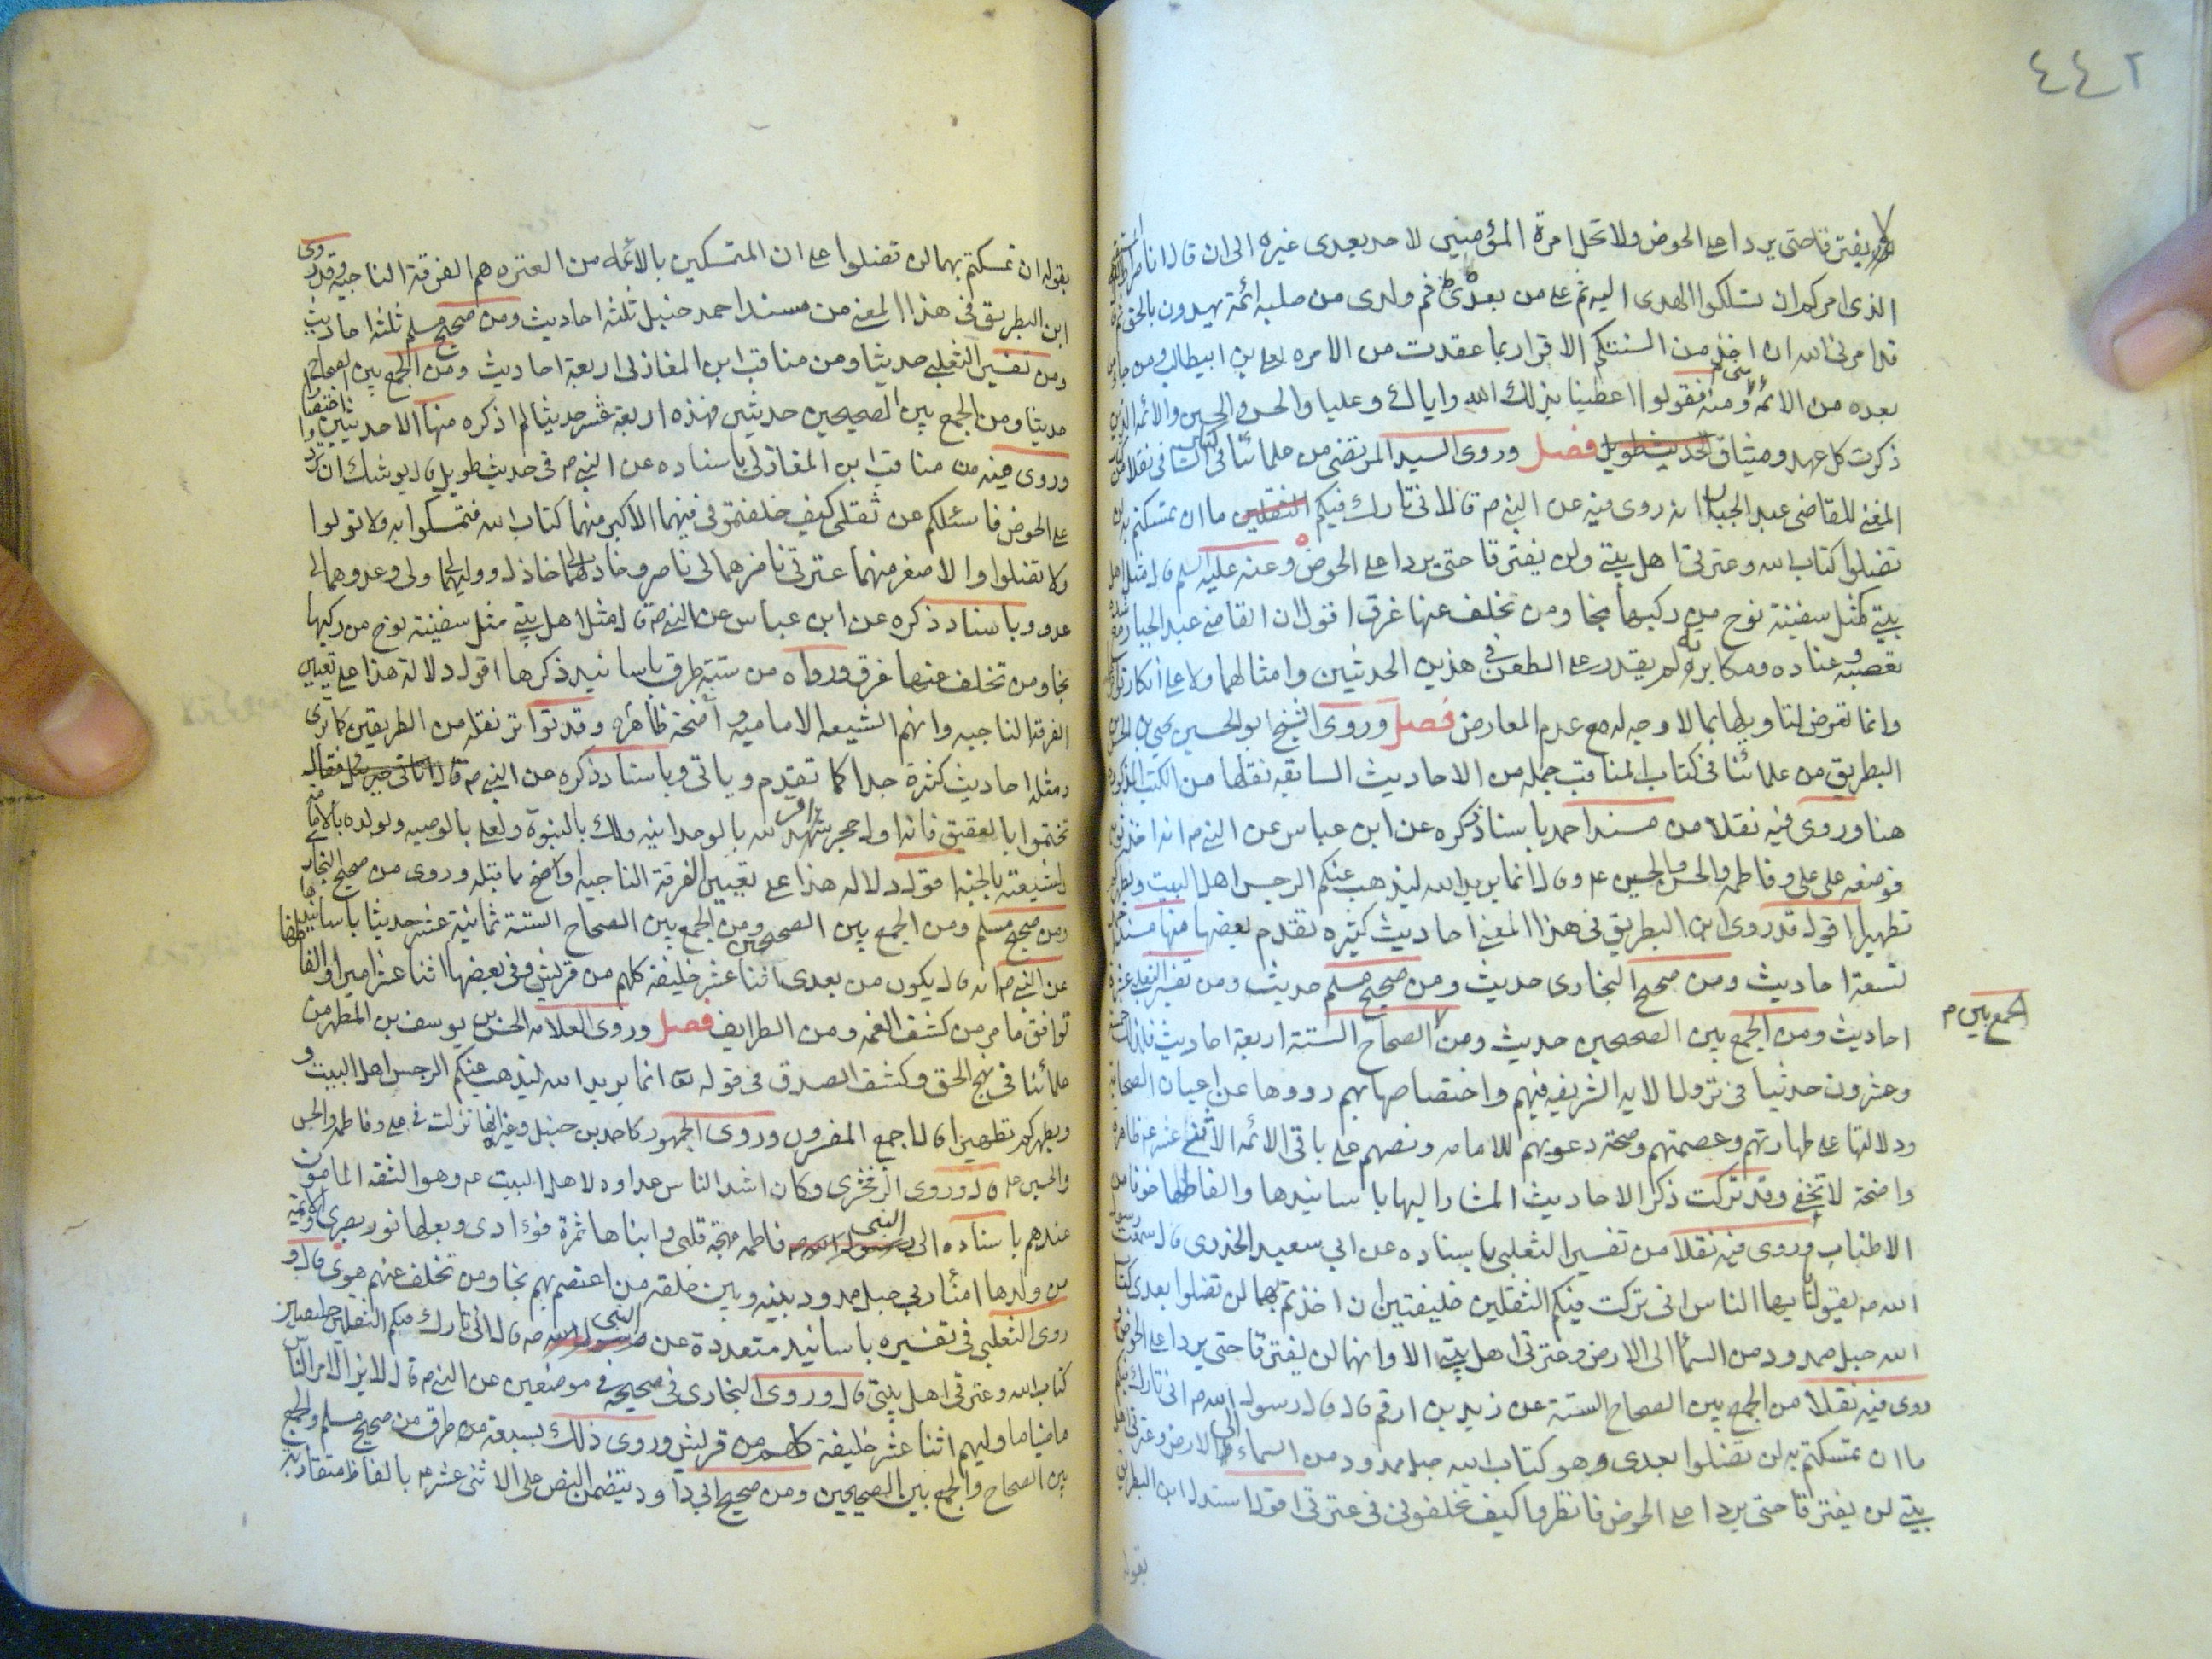 ٤٤٢
يفترقا حتى يردا على الحوض ولا تحل امرة المؤمنين لاحد بعدى غيره الى ان قال انا صراط الله
الذى امركم ان تسلكوا الهدى اليه ثم على من بعدى ثم ولدى من صلبه ائمة يهدون بالحق
قد امرنى الله ان اخذ من السنتكم الاقرار بما عقدت من الامره لعلى بن ابيطالب ومن جاء
بعده من الائمة ومنه فقولوا اعطينا بذلك الله واياك وعليا والحسن والحسين والائمة الذين
ذكرت كل عهد وميثاق الحديث طويل فصل وروى السيد المرتضى من علمائنا فى كتاب الشافى نقلا من كتاب
المغنى للقاضى عبد الجبار انه روى فيه عن النبى ص قال انى تارك فيكم الثقلين ما ان تمسكتم به لن
تضلوا كتاب الله وعترتى اهل بيتى ولن يفترقا حتى يردا على الحوض وعنه عليه السلم قال مثل اهل
بيتى كمثل سفينة نوح من ركبها نجا ومن تخلف عنها غرق اقول ان القاضى عبد الجبار مع شدة
تعصبه وعناده ومكابرته لم يقدر على الطعن فى هذين الحديثين وامثالهما ولا على انكار
وانما تعرض لتاويلها بما لا وجه له مع عدم المعارض فصل وروى الشيخ ابو الحسين يحيى بن الحسن
البطريق من علمائنا فى كتاب المناقب جمله من الاحاديث السابقه نقلها من الكتب المذكوره
هنا وروى فيه نقلا من مسند احمد باسناد ذكره عن ابن عباس عن النبى ص انه اخذ ثوبه
فوضعه على على وفاطمه والحسن والحسين ع وقال انما يريد الله ليذهب عنكم الرجس اهل البيت ويطهركم
تطهيرا اقول قد روى ابن البطريق فى هذا المعنى احاديث كثيره تقدم بعضها منها من مسند
تسعة احاديث ومن صحيح البخارى حديث ومن صحيح مسلم حديث ومن تفسير الثعلبى عشرة
احاديث ومن الجمع بين الصحيحين حديث ومن الصحاح الستة اربعة احاديث فذلك خمسة
الجمع بين م
وعشرون حديثا فى نزول الايه الشريفه فيهم واختصاصها بهم رووها عن اعيان الصحابه
ودلالتها على طهارتهم وعصمتهم وصحة دعويهم للامامه ونصهم على باقى الائمة الاثنى عشر ع ظاهرة
واضحة لا تخفى وقد تركت ذكر الاحاديث المشار اليها باسانيدها والفاظها خوفا من
الاطناب وروى فيه نقلا من تفسير الثعلبى باسناده عن ابى سعيد الخدرى قال سمعت رسول
الله ص يقول ايها الناس انى تركت فيكم الثقلين خليفتين ان اخذتم بهما لن تضلوا بعدى كتاب
الله حبل ممدود من السماء الى الارض وعترتى اهل بيتى الا وانهما لن يفترقا حتى يردا على الحوض
روى فيه نقلا من الجمع بين الصحاح الستة عن زيد بن ارقم قال قال رسول الله ص انى تارك فيكم
ما ان تمسكتم به لن تضلوا بعدى وهو كتاب الله حبل ممدود من السماء الى الارض وعترتى اهل
بيتى لن يفترقا حتى يردا على الحوض فانظروا كيف تخلفونى فى عترتى اقول استدل ابن البطريق
بقوله
بقوله ان تمسكتم بهما لن تضلوا على ان المتمسكين بالائمة من العتره هم الفرقة الناجيه وقد روى
ابن البطريق فى هذا المعنى من مسند احمد حنبل ثلثة احاديث ومن صحيح مسلم ثلثة احاديث
ومن تفسير الثعلبى حديثا ومن مناقب ابن المغازلى اربعة احاديث ومن الجمع بين الصحاح
حديثا ومن الجمع بين الصحيحين حديثين فهذه اربعة عشر حديثا لم اذكر منها الا حديثين اختصارا
وروى فيه من مناقب ابن المغازلى باسناده عن النبى ص فى حديث طويل قال يوشك ان تردوا
على الحوض فاسئلكم عن ثقلى كيف خلفتمونى فيهما الاكبر منهما كتاب الله فتمسكوا به ولا تولوا
ولا تضلوا والاصغر منهما عترتى ناصرهما لى ناصر وخاذلهما لى خاذل ووليهما لى ولى وعدوهما لى
عدو وباسناد ذكره عن ابن عباس عن النبى ص قال مثل اهل بيتى مثل سفينة نوح من ركبها
نجا ومن تخلف عنها غرق ورواه من ستة طرق باسانيد ذكرها اقول دلالة هذا على تعيين
الفرقة الناجيه وانهم الشيعه الاماميه واضحة ظاهرة وقد تواتر نقله من الطريقين كما ترى
ومثله احاديث كثيرة جدا كما تقدم وياتى وباسناد ذكره عن النبى ص قال اتانى جبرئيل فقال
تختموا بالعقيق فانه اول حجر شهد لله بالوحدانيه ولك بالنبوة ولعلى بالوصيه ولولده بالامامه
ولشيعته بالجنه اقول دلاله هذا على تعيين الفرقة الناجيه اوضح مما قبله وروى من صحيح البخارى
ومن صحيح مسلم ومن الجمع بين الصحيحين ومن الجمع بين الصحاح الستة ثمانية عشر حديثا باسانيدها
عن النبى ص انه قال يكون من بعدى اثنا عشر خليفة كلهم من قريش وفى بعضها اثنا عشر اميرا والفاظها
توافق ما مر من كشف الغمه ومن الطرايف فصل وروى العلامه الحسن بن يوسف بن المطهر من
علمائنا فى نهج الحق وكشف الصدق فى قوله تعا انما يريد الله ليذهب عنكم الرجس اهل البيت و
ويطهركم تطهيرا قال اجمع المفسرون وروى الجمهور كاحمد بن حنبل وغيره انها نزلت فى على وفاطمه والحسن
والحسين ع قال وروى الزمخشرى وكان اشد الناس عداوه لاهل البيت ع وهو الثقه المامون
عندهم باسناده الى النبى ص فاطمه مهجة قلبى وابناها ثمرة فؤادى وبعلها نور بصرى والائمة
من ولدها امناء ربى حبل ممدود بينه وبين خلقه من اعتصم بهم نجا ومن تخلف عنهم هوى قال و
روى الثعلبى فى تفسيره باسانيد متعددة عن النبى ص قال انى تارك فيكم الثقلين خليفتين
كتاب الله وعترتى اهل بيتى قال وروى البخارى فى صحيحه فى موضعين عن النبى ص قال لا يزال امر الناس
ماضيا ما وليهم اثنا عشر خليفة كلهم من قريش وروى ذلك بسبعه من طرق من صحيح مسلم والجمع
بين الصحاح والجمع بين الصحيحين ومن صحيح ابى داود يتضمن النص على الاثنى عشر ع بالفاظ متقاربه